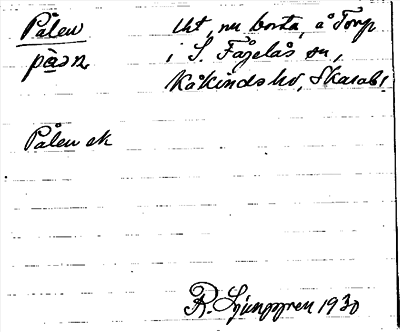 Pålen
Uht, nu borta, å Torp
på̀ən
i S. Fågelås sn,
Kåkinds hd, Skarabl.
Pålen sk
R. Ljunggren 1930